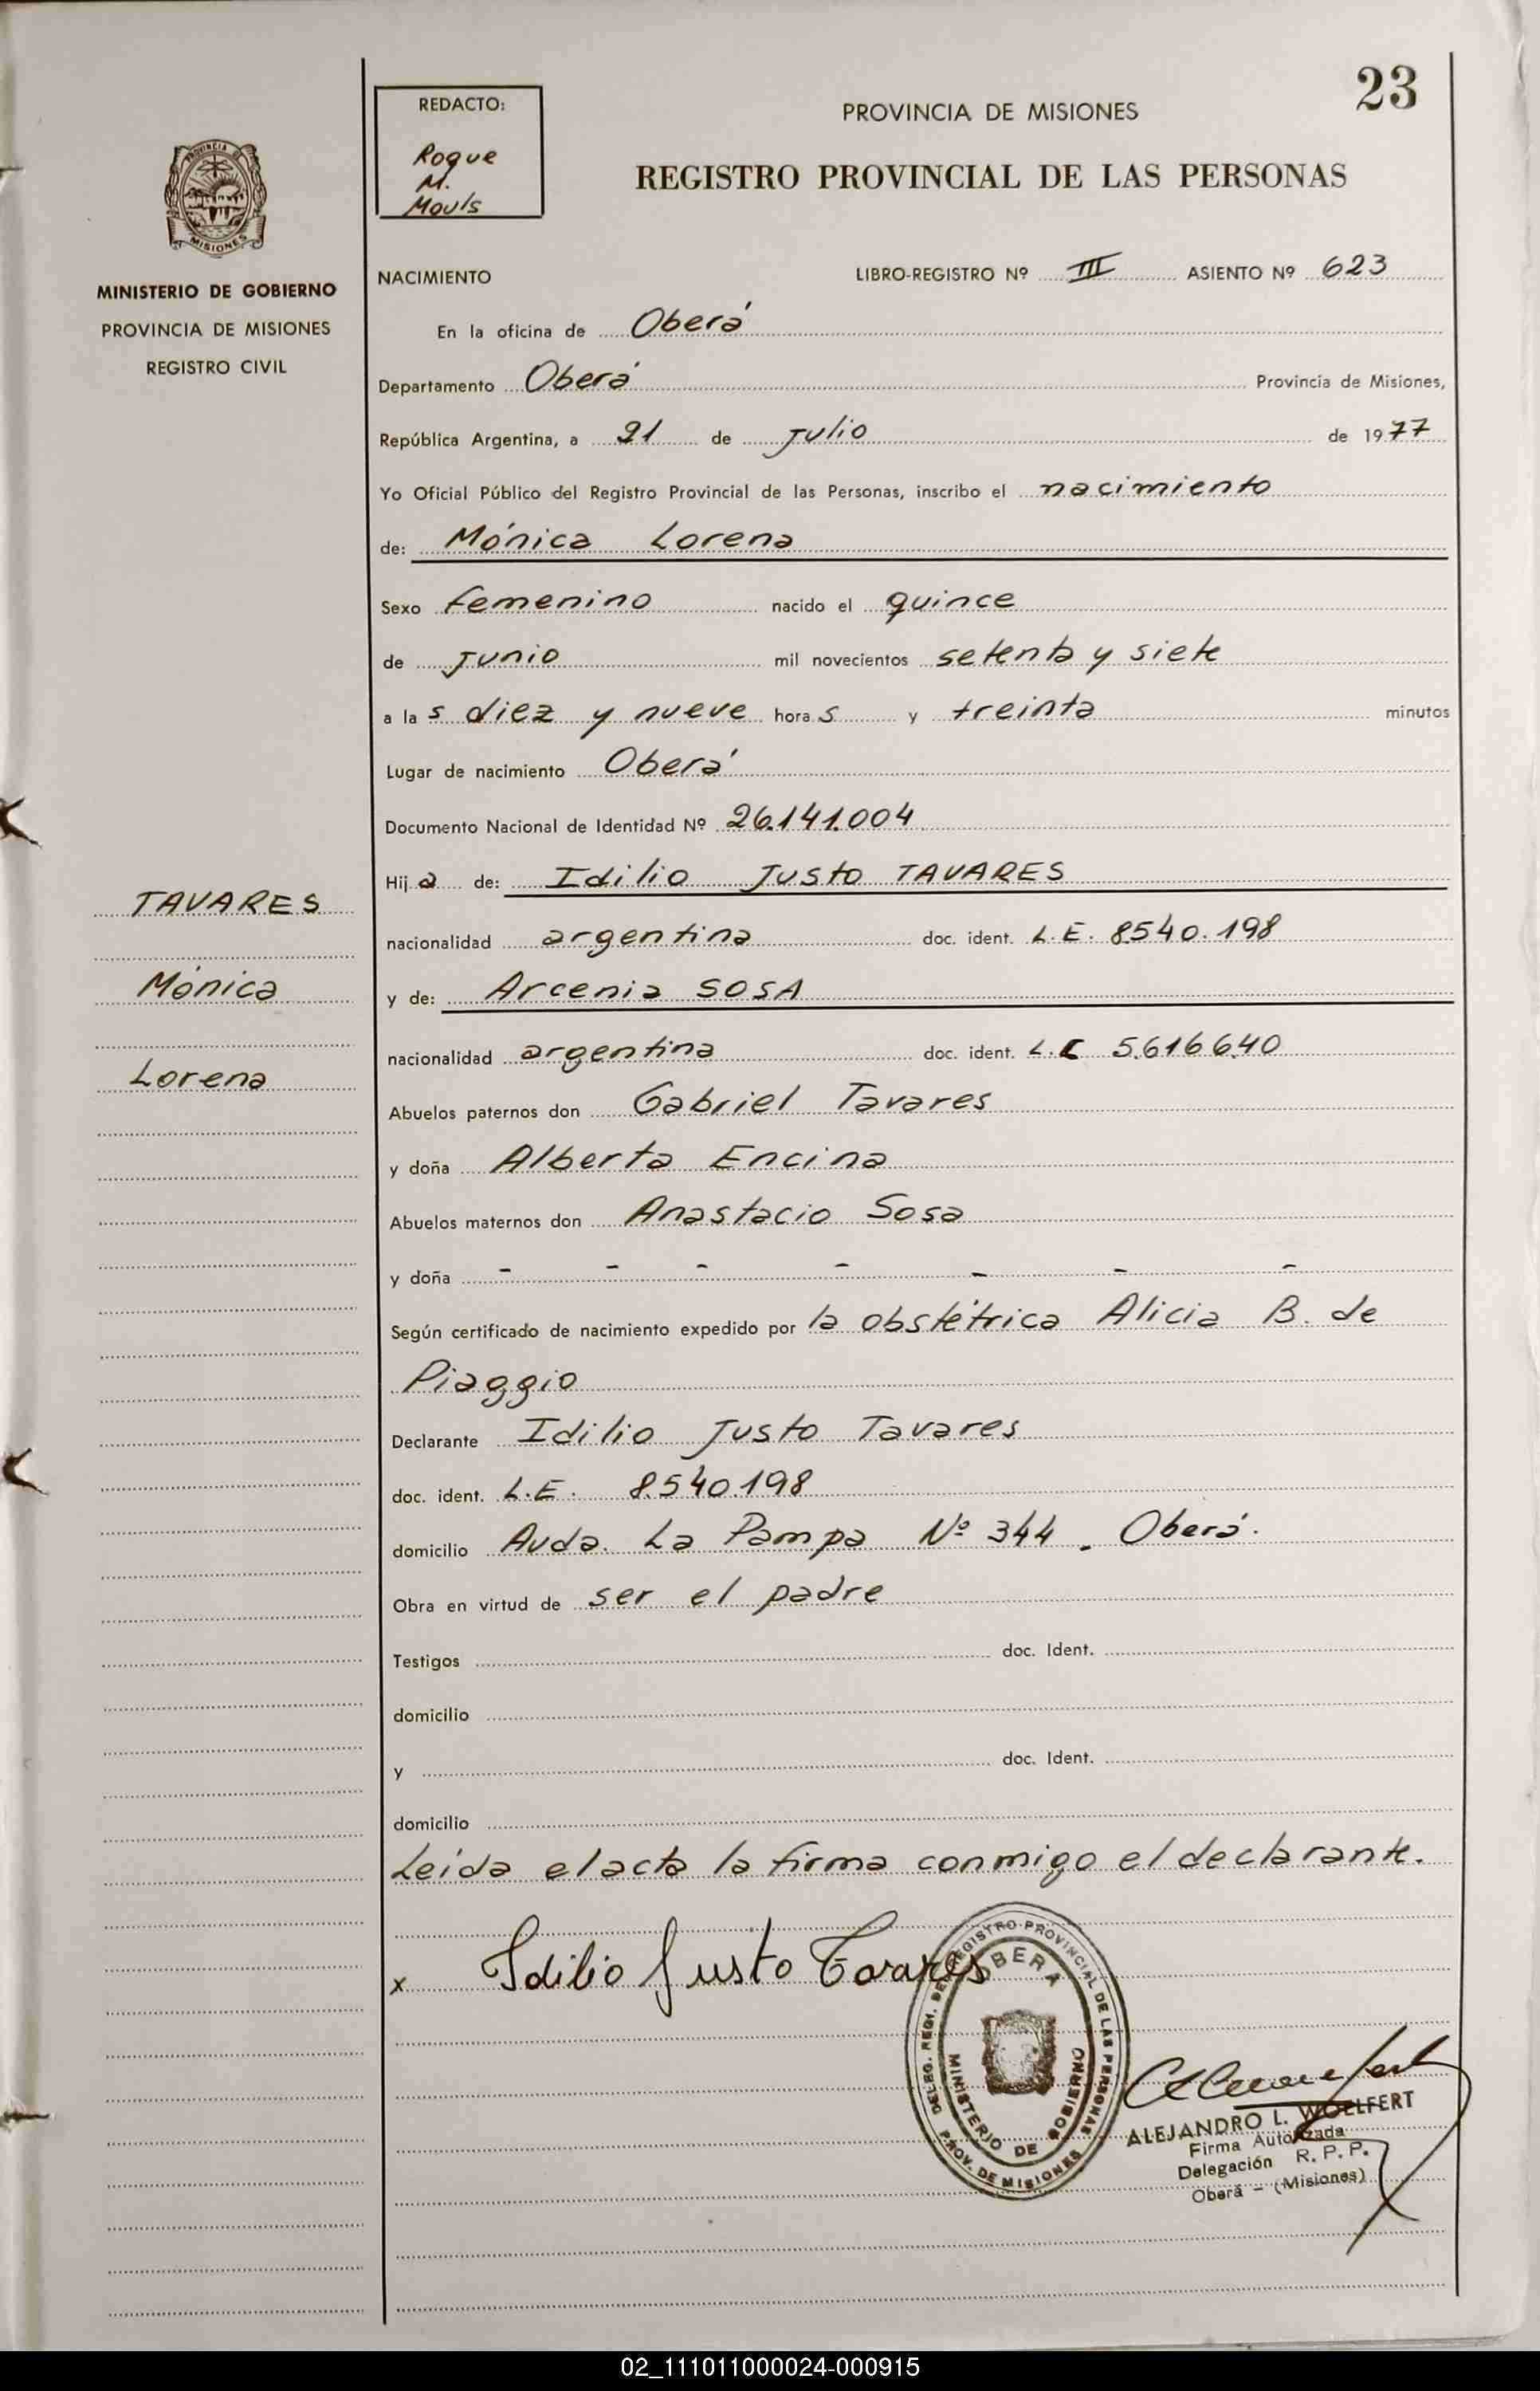 23
REDACTO:
Roque
M.
Mouls
PROVINCIA DE MISIONES
REGISTRO PROVINCIAL DE LAS PERSONAS
PROVINCIA DE
MISIONES
MINISTERIO DE GOBIERNO
PROVINCIA DE MISIONES
REGISTRO CIVIL
NACIMIENTO LIBRO-REGISTRO Nº III ASIENTO Nº 623
En la oficina de Oberá
Departamento Oberá Provincia de Misiones,
República Argentina, a 21 de Julio de 1977
Yo Oficial Público del Registro Provincial de las Personas, inscribo el nacimiento
de: Mónica Lorena
Sexo femenino nacido el quince
de Junio mil novecientos setenta y siete
a las diez y nueve horas y treinta minutos
Lugar de nacimiento Oberá
Documento Nacional de Identidad Nº 26.141.004
Hija de: Idilio Justo TAVARES
TAVARES
nacionalidad argentina doc. ident. L.E. 8540.198
Mónica
y de: Arcenia SOSA
nacionalidad argentina doc. ident. L.C 5.616.640
Lorena
Abuelos paternos don Gabriel Tavares
y doña Alberta Encina
Abuelos maternos don Anastacio Sosa
y doña - - - - - - -
Según certificado de nacimiento expedido por la obstétrica Alicia B. de
Piaggio
Declarante Idilio Justo Tavares
doc. ident. L.E. 8.540.198
domicilio Avda. La Pampa Nº 344 . Oberá.
Obra en virtud de ser el padre
Testigos doc. Ident.
domicilio
y doc. Ident.
domicilio
Leída el acta la firma conmigo el declarante.
x Idilio Justo Tavares
DELEG. REGI. DEL REGISTRO PROVINCIAL DE LAS PERSONAS
OBERA
MINISTERIO DE GOBIERNO
PROV. DE MISIONES
ALEJANDRO L. WOELFERT
Firma Autorizada
Delegación R. P. P.
Oberá - (Misiones)
02_111011000024-000915